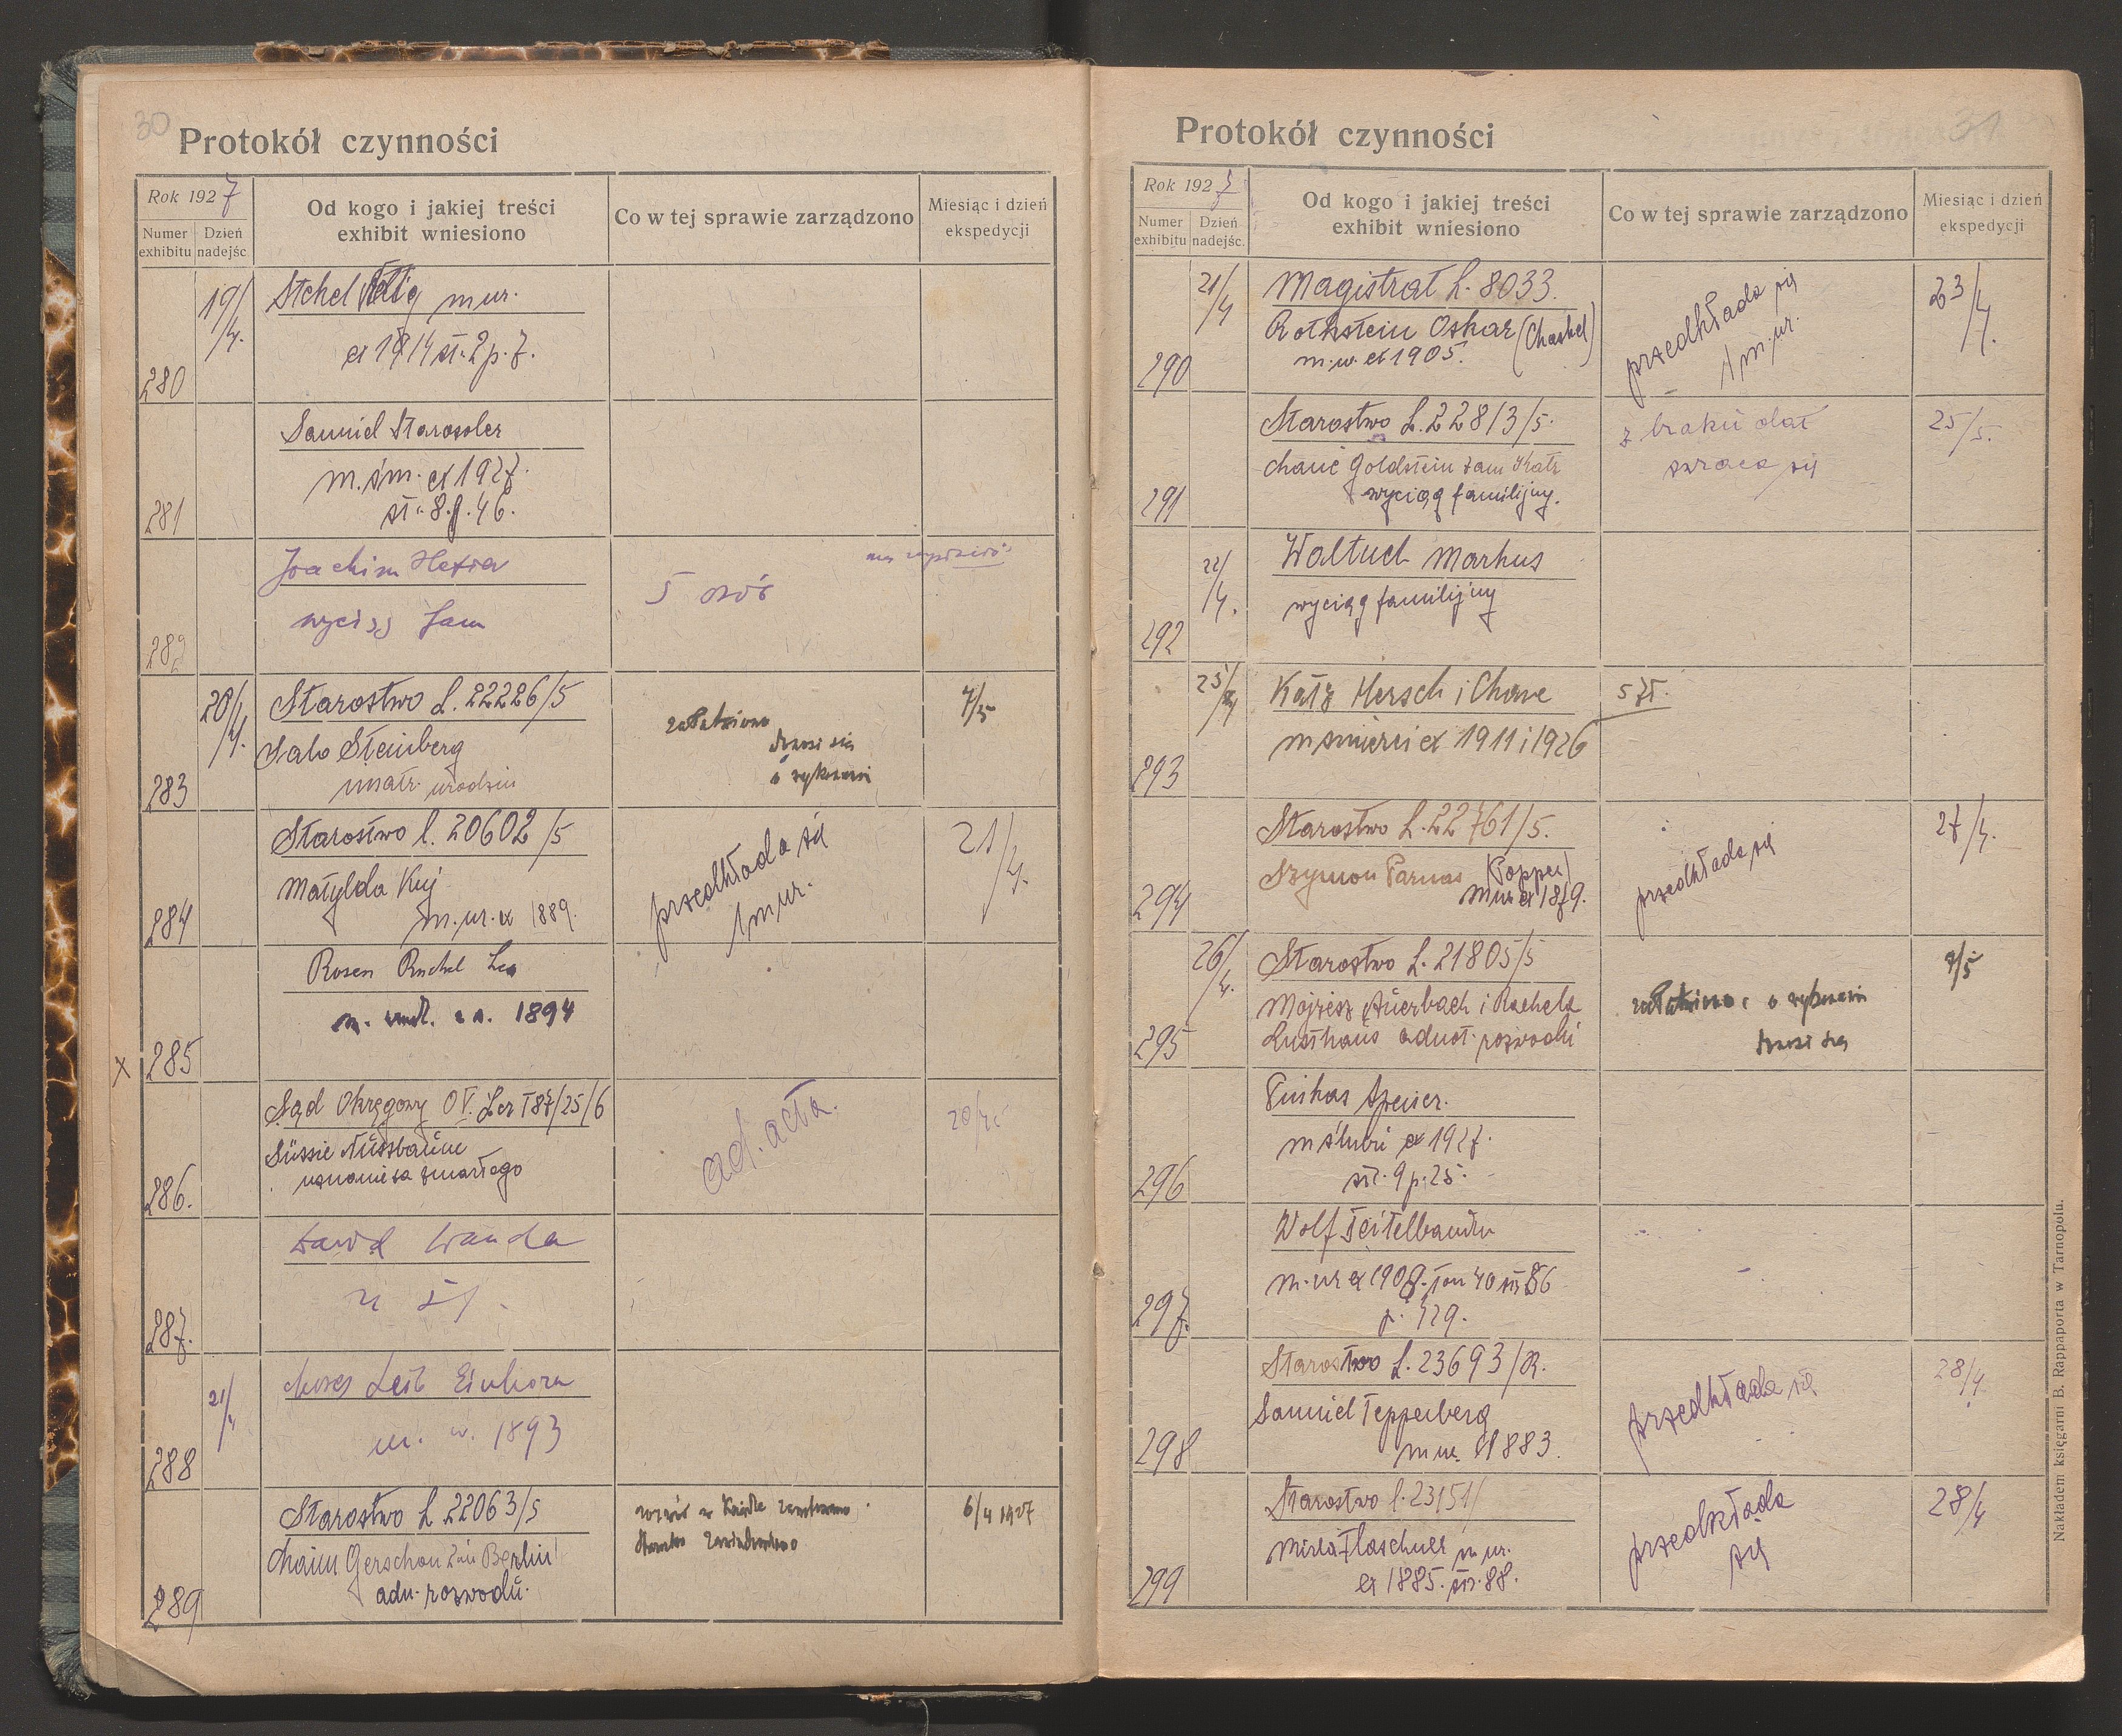 30
Protokół czynności
Rok 1927
Numer exhibitu
Dzień nadejśc.
Od kogo i jakiej treści exhibit wniesiono
Co w tej sprawie zarządzono
Miesiąc i dzień ekspedycji
280
19/4.
Stekel m ur.
ex 1914 st. 2 p. 7.
281
Samuel Starosoler
m. śm. ex 1927.
st. 8. p. 46.
282
Joachim
wyciąg fam
5 osób
283
20/4.
Starostwo L. 22226/5
Salo Steinberg
matr. urodzin
załatwiono
4/5
284
Starostwo l. 20602/5
Matylda Kuj
m. ur. ex 1889.
przedkłada się
1 m ur.
21/4.
x 285
Rosen Ruchel Lea
1894
286.
Sąd Okręgowy O V. Lcz T 87/25/6
Süssie Nussbaum
uznanie za zmarłego
ad. acta.
20/4
287.
Dawid Wanda
288
21/4
Moses Leib Einhorn
1893
289
Starostwo L 22063/5
Chaim Gerschon
Berlin
adn. rozwodu.
6/4 1927
31
Protokół czynności
Rok 1927
Numer exhibitu
Dzień nadejśc.
Od kogo i jakiej treści exhibit wniesiono
Co w tej sprawie zarządzono
Miesiąc i dzień ekspedycji
290
21/4
Magistrat L. 8033.
Rothstein Oskar (Chaskel)
m. u. ex 1905.
przedkłada się
1 m. ur.
23/4.
291
Starostwo L. 22813/5.
Chane Goldstein zam Katz
wyciąg familijny.
z braku dat
zwraca się
25/5.
292
22/4.
Waltuch Markus
wyciąg familijny
293
25/4
Katz Hersch i Chane
m śmierci ex 1911 i 1926
5 zł.
294
Starostwo L. 22761/5.
Szymon Parnas (Popper)
m ur ex 1879.
przedkłada się
27/4.
295
26/4.
Starostwo L. 21805/5
Mojżesz Auerbach i Rachela
Lusthaus adnot. rozwodu
załatwiono
296
Pinkas Speiser.
m ślubu ex 1927.
st. 9 p. 25.
297.
Wolf Teitelbaum
m. ur ex 1909. Tom 40 st 86
p. 429.
298
Starostwo L. 23693/R.
Samuel Tepperberg
m ur. 1883.
przedkłada się
28/4.
299
Starostwo l. 23151/
Mirla Flaschner m ur.
ex 1885. str. 88.
przedkłada
się
28/4
Nakładem księgarni B. Rappaporta w Tarnopolu.